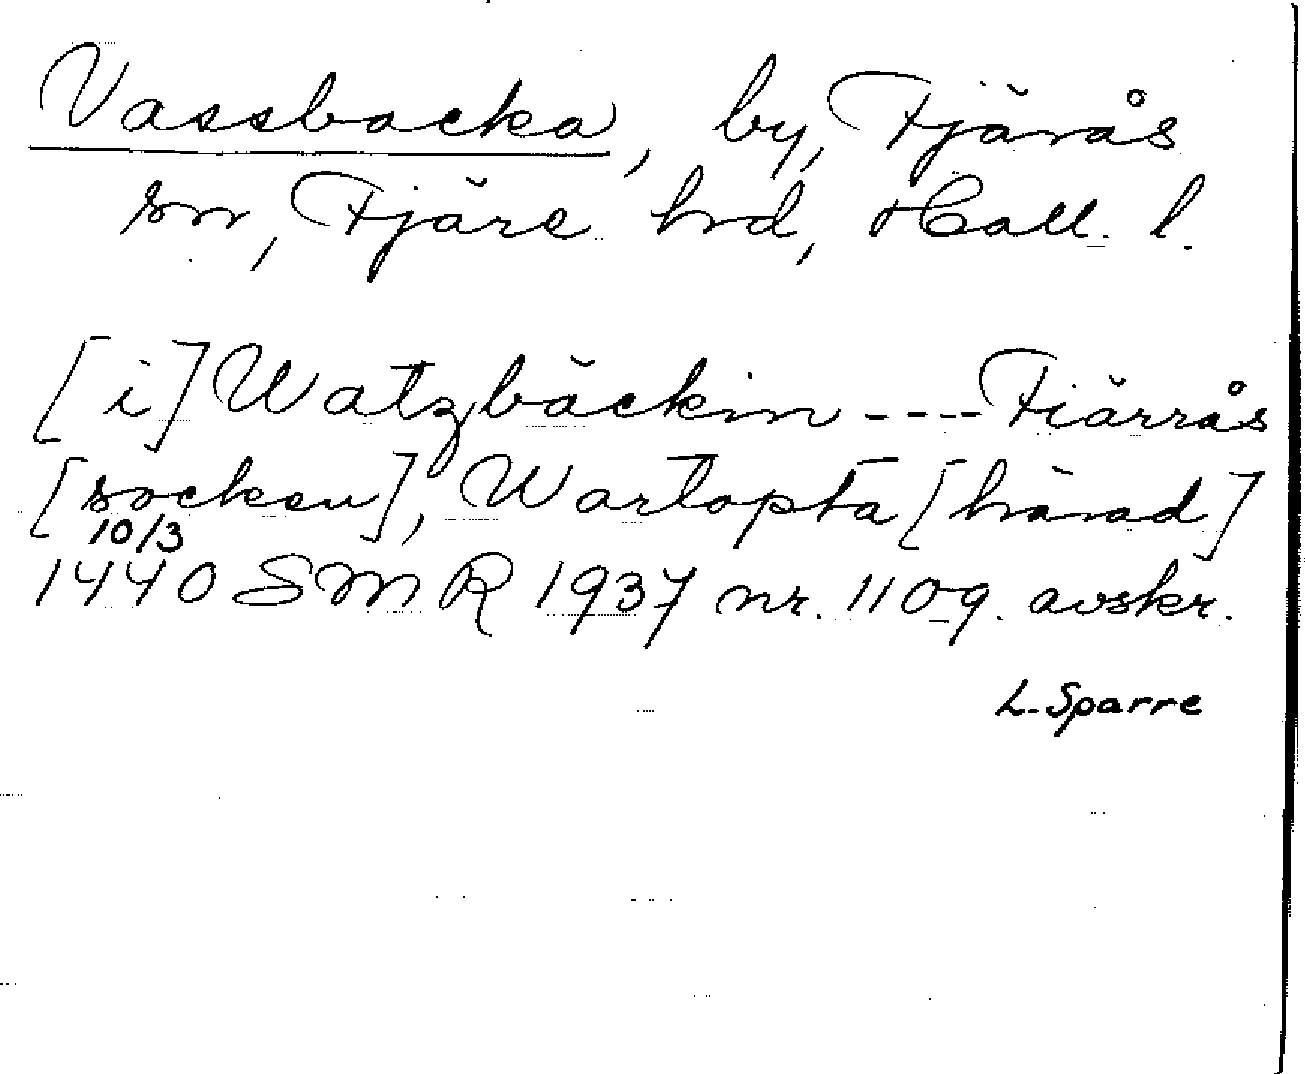 Vassbacka, by, Fjärås
sn, Fjäre hrd, Hall. l.
[i] Watzbäckin ---- Fiärrås
[socken], Wartopta [härad]
10/3
1440 SMR 1937 nr. 1109. avskr.
L. Sparre